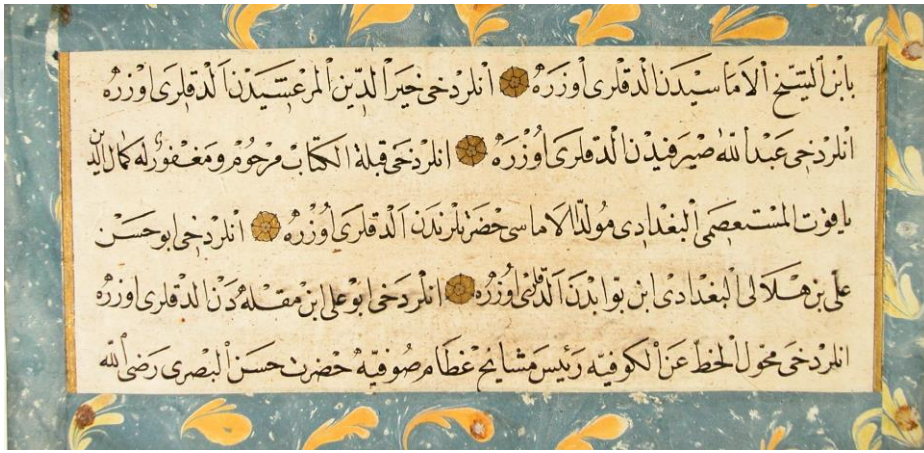 بابن الشيخ الاماسيدن الدقلرى اوزره انلر دخى خير الدين المرعشيدن الدقلرى اوزره
انلر دخى عبد الله صيرفيدن الدقلرى اوزره انلر دخى قبلة الكتاب مرحوم ومغفور له كمال الدين
ياقوت المستعصمى البغدادى مولدا الاماسى حضرتلرندن الدقلرى اوزره انلر دخى ابو حسن
على بن هلالى البغدادى ابن بوابدن الدقلرى اوزره انلر دخى ابو على ابن مقله دن الدقلرى اوزره
انلر دخى محول الخط عن الكوفيه رئيس مشايخ عظام صوفيه حضرت حسن البصرى رضى الله